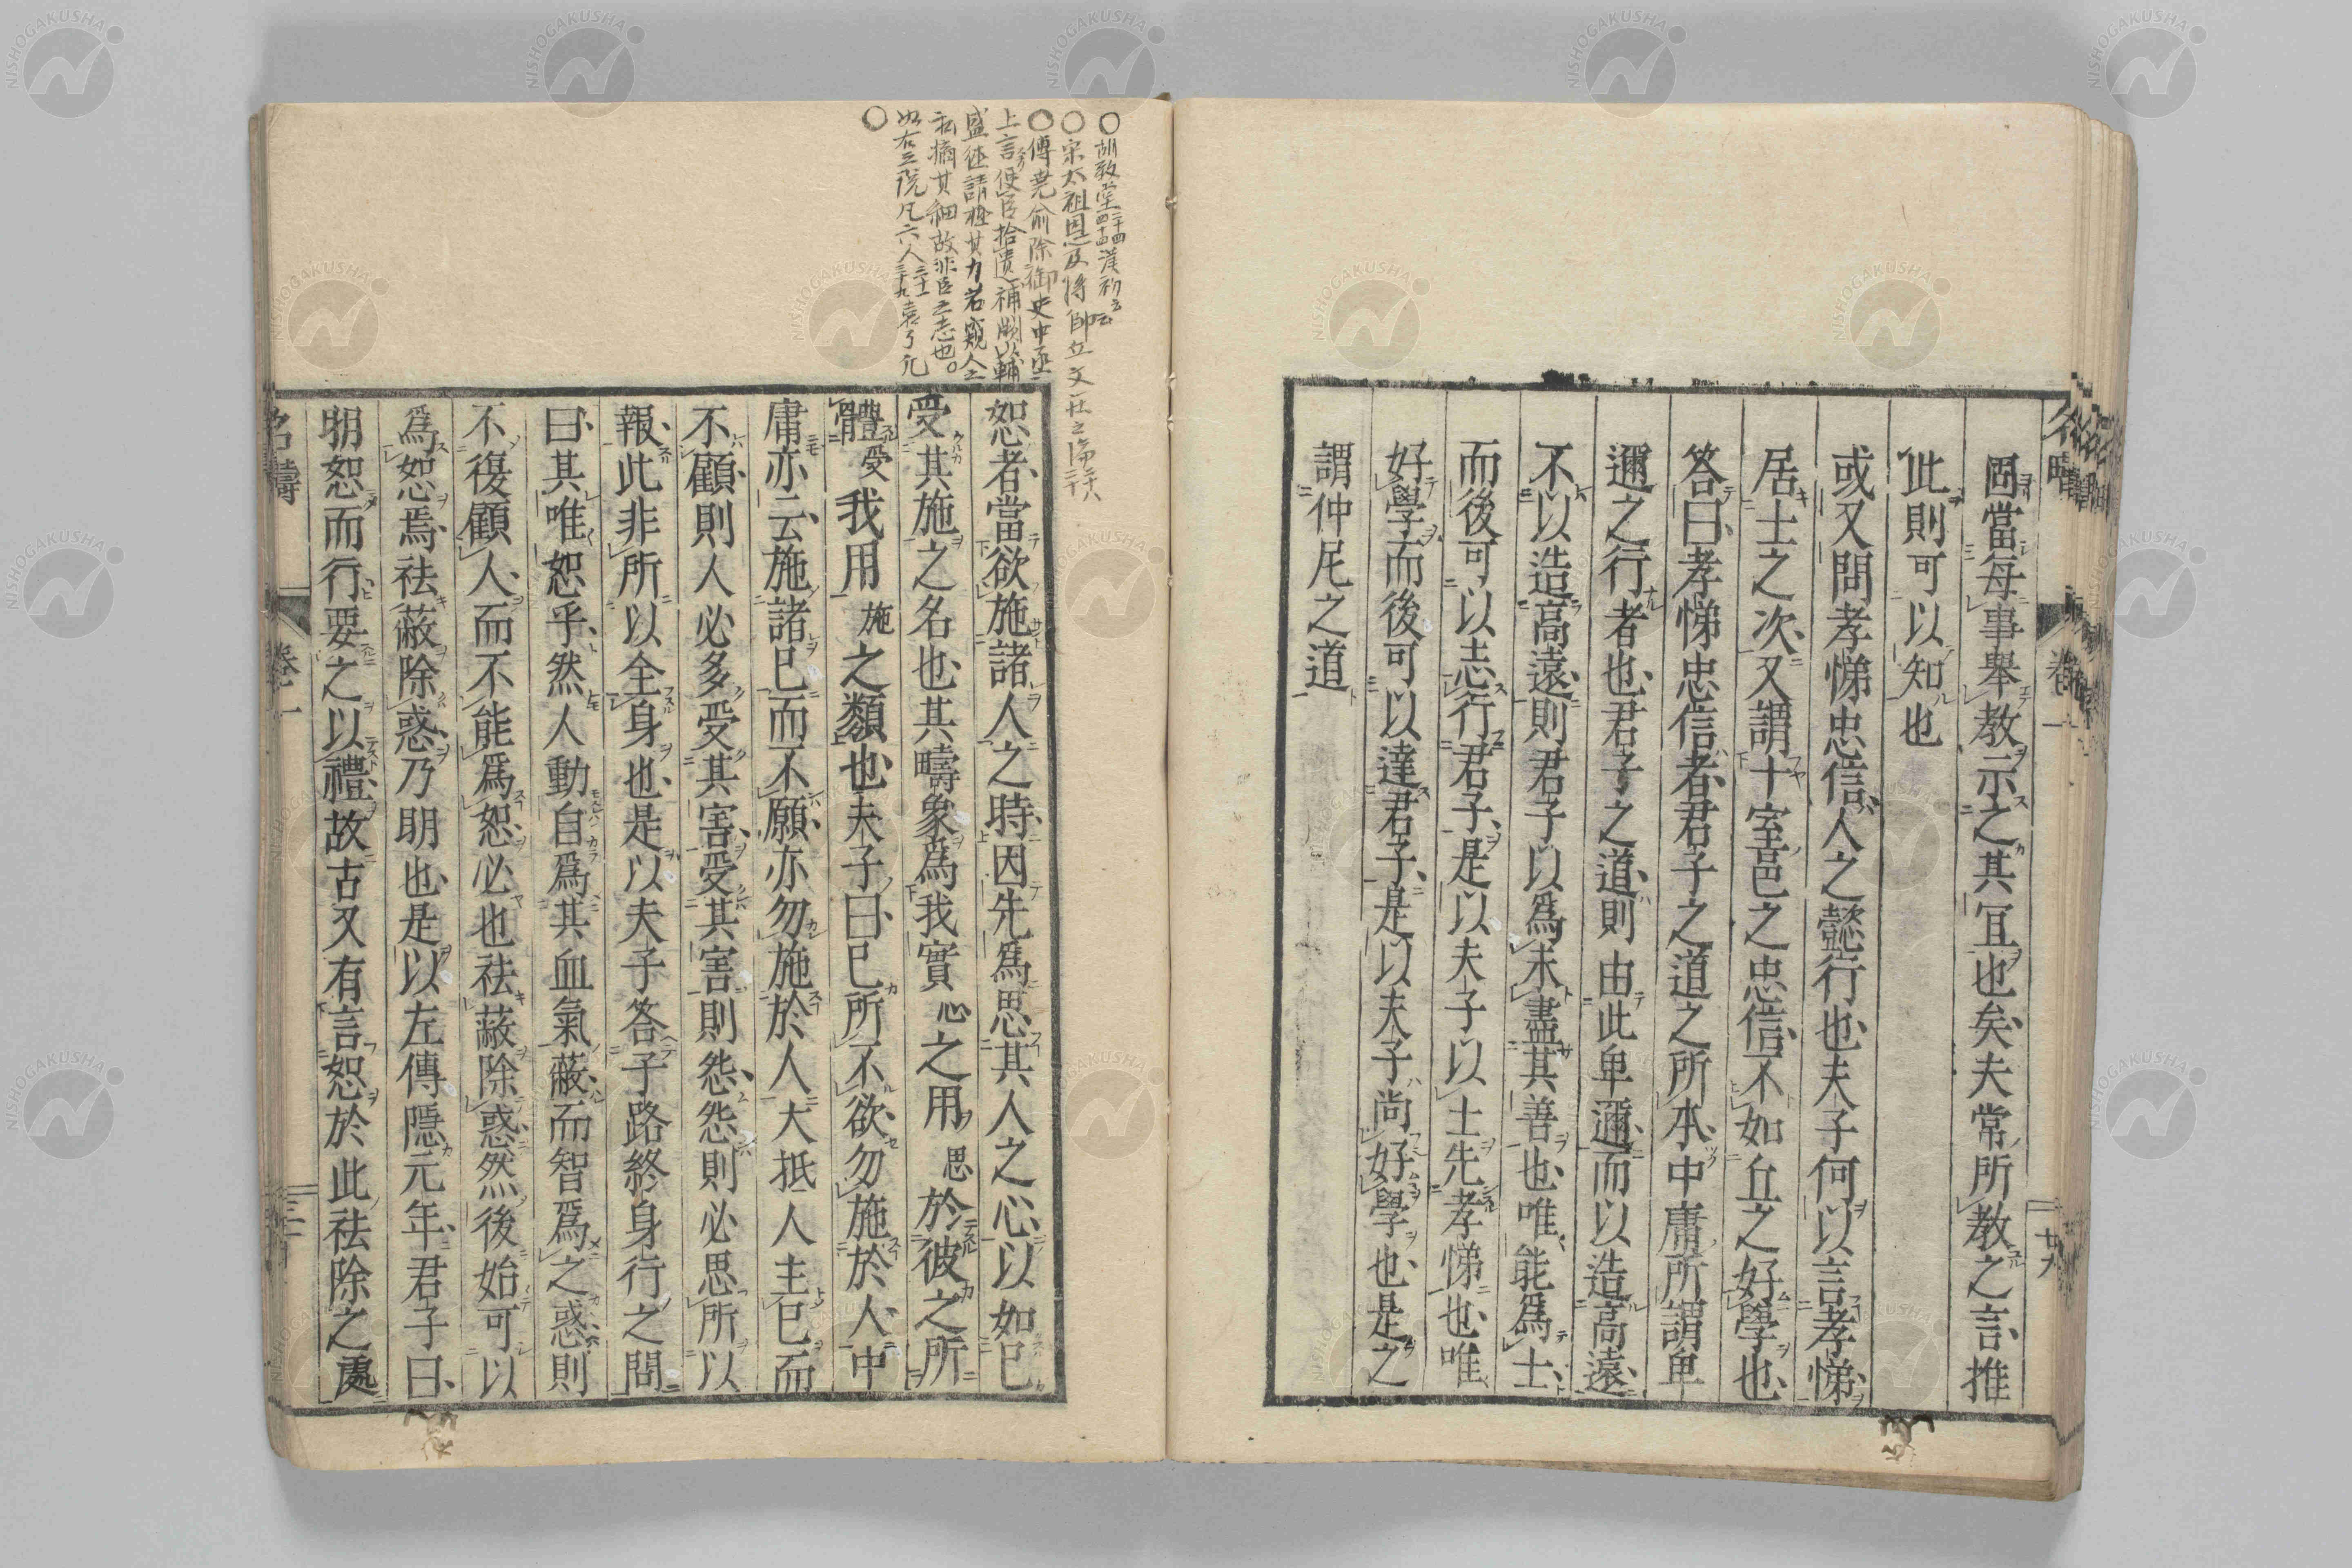 固當每事舉教示之其宜也矣夫常所教之言推
此則可以知也
或又問孝悌忠信人之懿行也夫子何以言孝悌
居士之次又謂十室邑之忠信不如丘之好學也
答曰孝悌忠信者君子之道之所本中庸所謂卑
邇之行者也君子之道則由此卑邇而以造高遠
不以造高遠則君子以爲未盡其善也唯能爲士
而後可以志行君子是以夫子以士先孝悌也唯
好學而後可以達君子是以夫子尚好學也是之
謂仲尼之道
名疇 卷一 廿九
○胡敎堂二十四四十四漢初云云
○宋太祖因及將帥立文社之
○傅堯俞除御史中丞
上言使臣拾遺補闕以輔
盛徳請極其力若窺人之
私摘其細故非臣之志也。
如右三院凡六人三十一三十九袁了凡
○
恕者當欲施諸人之時因先爲思其人之心以如已
受其施之名也其疇象爲我實心之用思於彼之所
體受我用施之類也夫子曰已所不欲勿施於人中
庸亦云施諸已而不願亦勿施於人大抵人主已而
不顧則人必多受其害受其害則怨怨則必思所以
報此非所以全身也是以夫子答子路終身行之問
曰其唯恕乎然人動自爲其血氣蔽而智爲之惑則
不復顧人而不能爲恕必也祛蔽除惑然後始可以
爲恕焉祛蔽除惑乃明也是以左傳隱元年君子曰
明恕而行要之以禮故古又有言恕於此祛除之處
名疇 卷一 三